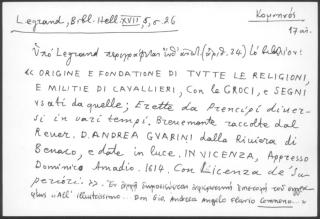 Legrand, Bibl. Hell. XVII, 5, σ. 26
Κομνηνός
17 αι.
Ὑπὸ Legrand περιγράφεται ὑπ' ἀριθ. 24) τὸ βιβλίον:
« ORIGINE E FONDATIONE DI TVTTE LE RELIGIONI,
E MILITIE DI CAVALLIERI, Con le CROCI, e SEGNI
usati da quelle; Erette da Prencipi diuer-
si in vari tempi. Breuemente raccolte dal
Reuer. D. ANDREA GVARINI dalla Riviera di
Benaco, e date in luce. IN VICENZA, Appresso
Domenico Amadio. 1614. Con Licenza de' Su-
periori ». Ἐν ἀρχῇ δημοσιεύεται ἀφιέρωσις τοῦ συγγρα-
φέως «All' illustrissimo... Don Gio. Andrea Angelo Flavio Comneno... »